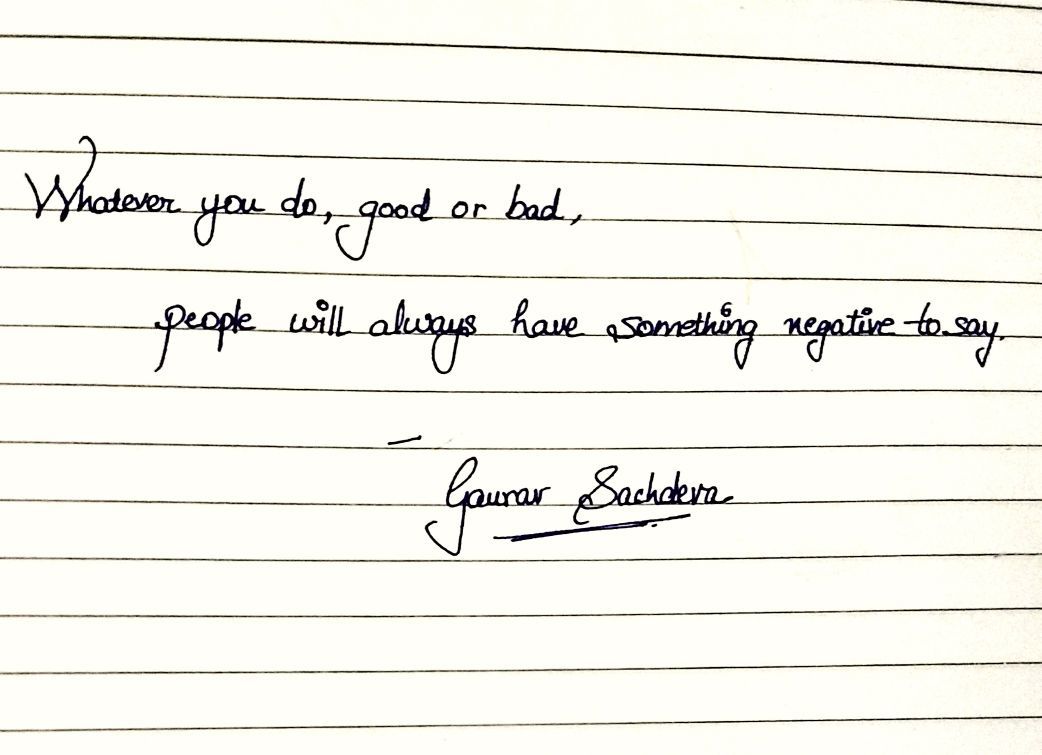 Whatever you do, good or bad,
people will always have something negative to say.
—
Gaurav Sachdeva